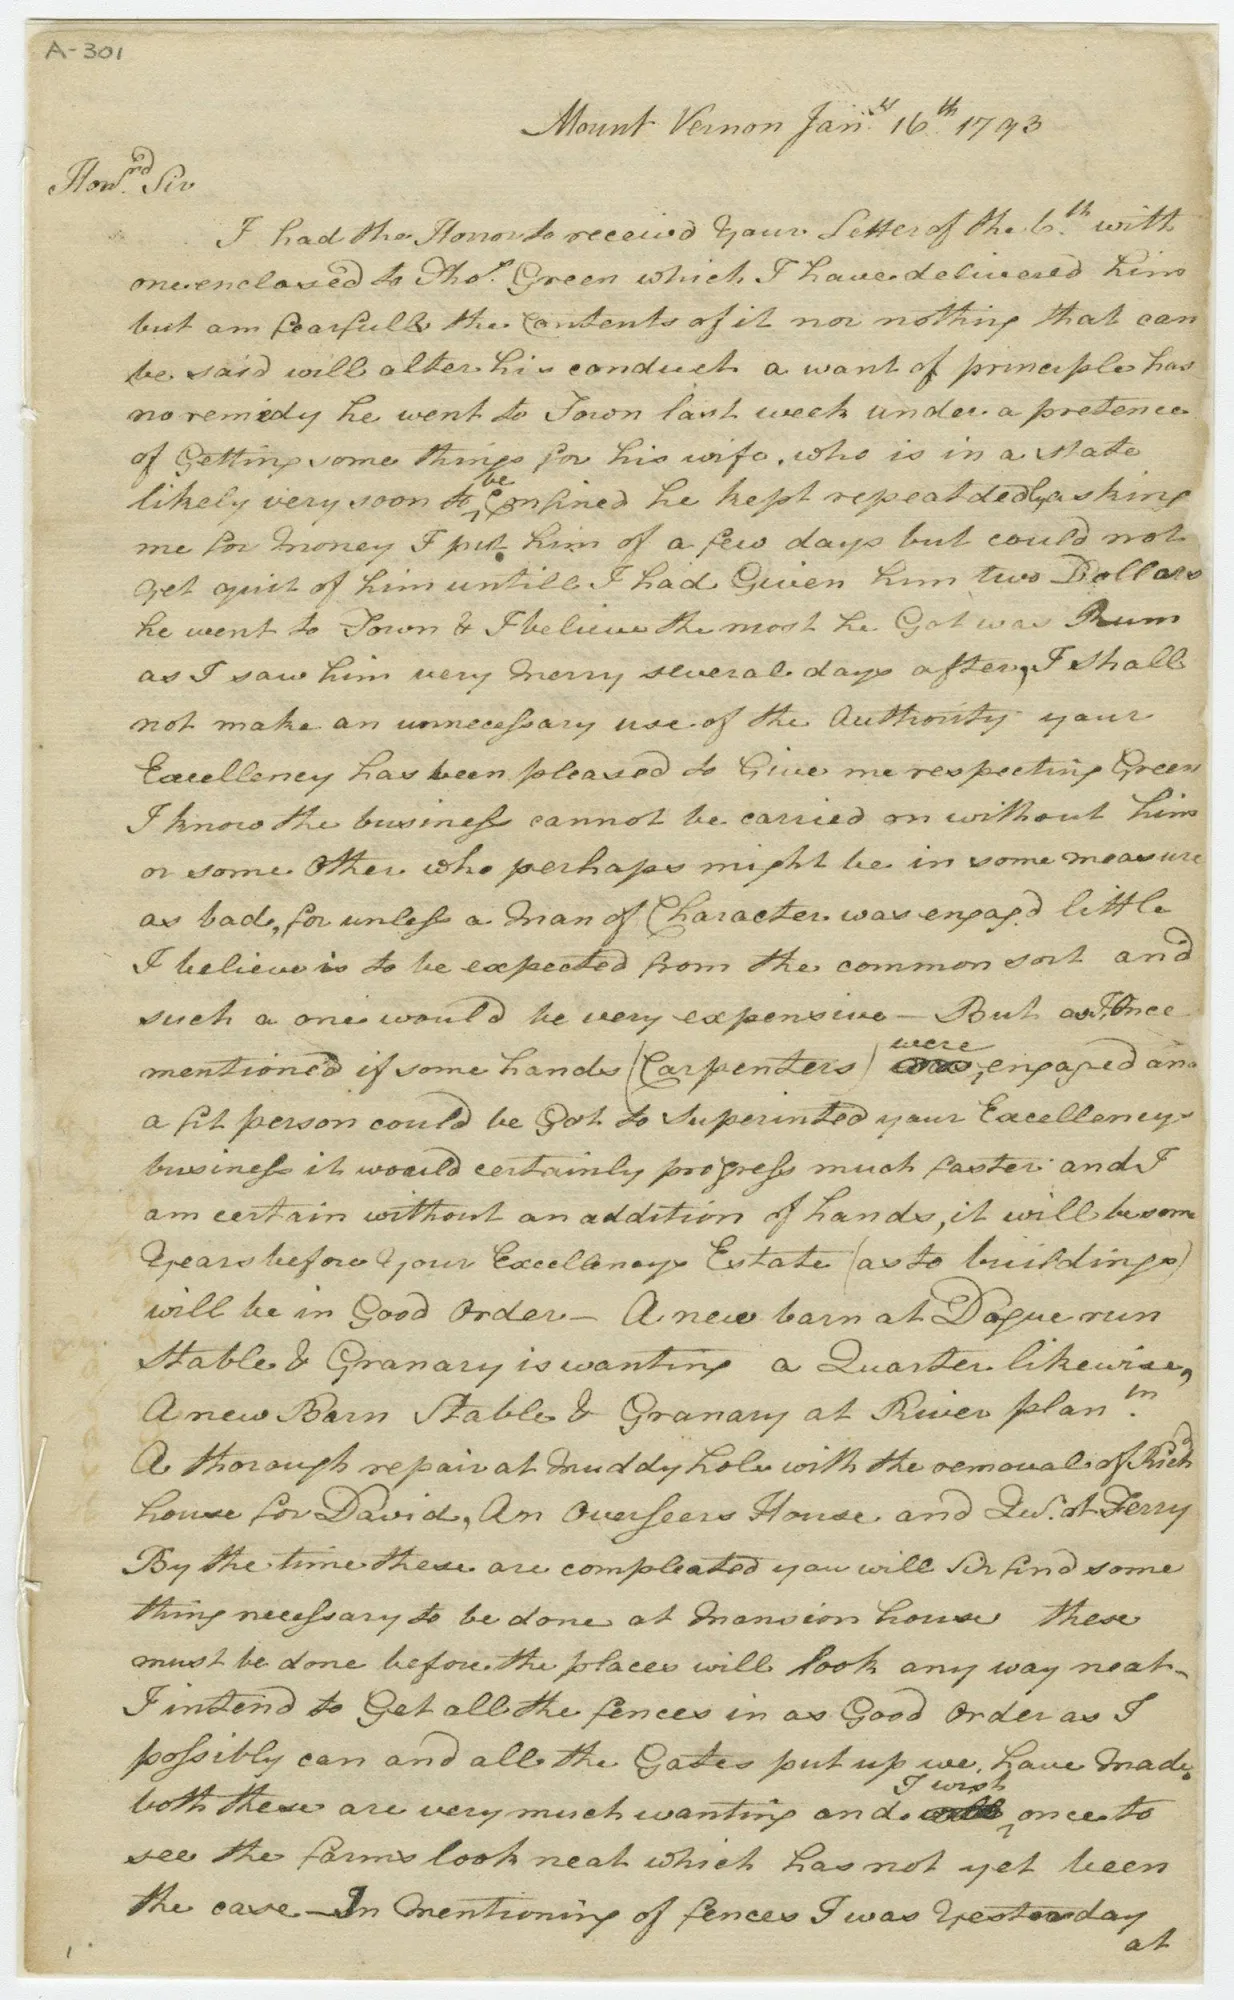 A-301
Mount Vernon Jany. 16th. 1793
Honrd. Sir
I had the Honor to receive Your Letter of the 6th. with
one enclosed to Thos. Green which I have delivered him
but am fearfull the Contents of it nor nothing that can
be said will alter his conduct a want of principle has
no remidy he went to Town last week under a pretence
of Getting some things for his wife, who is in a state
likely very soon to be Confined he kept repeatdedly asking
me for Money I put him of a few days but could not
get quit of him untill I had Given him two Dollars
he went to Town & I believe the most he Got was Rum
as I saw him very Merry several days after, I shall
not make an unnecessary use of the Authority your
Excellency has been pleased to Give me respecting Green
I know the business cannot be carried on without him
or some Other who perhaps might be in some measure
as bad, for unless a Man of Character was engag'd little
I believe is to be expected from the common sort and
such a one would be very expensive — But as I Once
mention'd if some hands (Carpenters) were engaged and
a fit person could be Got to Superinted your Excellencys
business it would certainly progress much faster and I
am certain without an addition of hands, it will be some
Years before Your Excellencys Estate (as to buildings)
will be in Good Order — A new barn at Dogue run
Stable & Granary is wanting a Quarter likewise,
A new Barn Stable & Granary at River plann.
A thorough repair at Muddy hole with the removal of Richd
house for David, An Overseers House and Qur. at Ferry
By the time these are compleated you will Sir find some
thing necessary to be done at Mansion house these
must be done before the places will look any way neat—
I intend to Get all the fences in as Good Order as I
possibly can and all the Gates put up we have Made
both these are very much wanting and I wish once to
see the farms look neat which has not yet been
the case — In Mentioning of fences I was Yesterday
at
1.